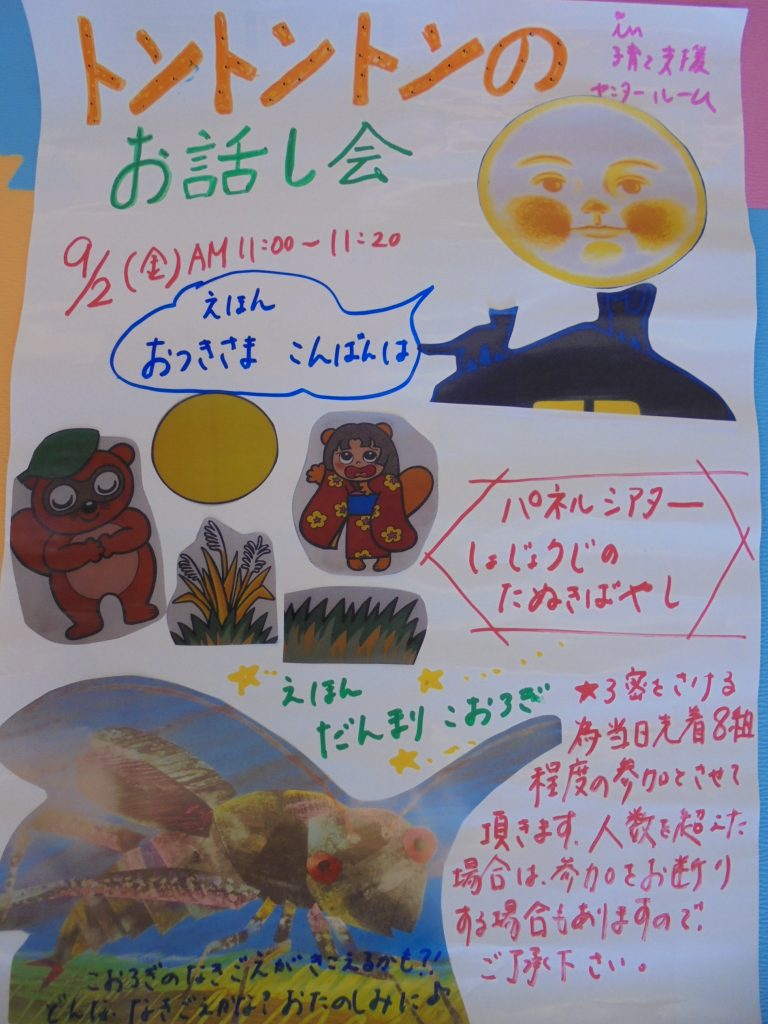 トントントンの
お話し会
in
子育て支援
センタールーム
9/2(金)AM11:00〜11:20
えほん
おつきさま こんばんは
パネルシアター
しょじょうじの
たぬきばやし
えほん
だんまり こおろぎ
★3密をさける
為当日先着8組
程度の参加とさせて
頂きます。人数を超えた
場合は、参加をお断り
する場合もありますので、
ご了承下さい。
こおろぎのなきごえがきこえるかも?!
どんな、なきごえかな?おたのしみに♪